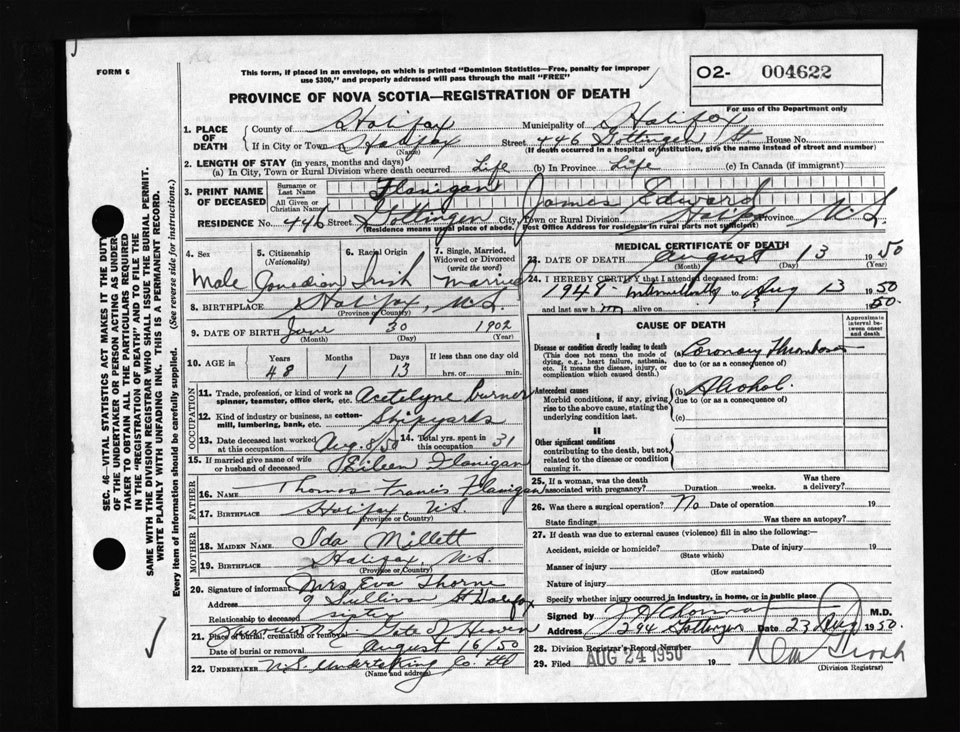 FORM 6
This form, if placed in an envelope, on which is printed "Dominion Statistics—Free, penalty for improper
use $300," and properly addressed will pass through the mail "FREE"
O2- 004622
For use of the Department only
PROVINCE OF NOVA SCOTIA—REGISTRATION OF DEATH
1. PLACE OF DEATH
County of Halifax Municipality of Halifax
If in City or Town Halifax Street 446 Gottingen St House No.
(Name) (If death occurred in a hospital or institution, give the name instead of street and number)
2. LENGTH OF STAY (in years, months and days)
(a) In City, Town or Rural Division where death occurred Life (b) in Province Life (c) In Canada (if immigrant)
3. PRINT NAME OF DECEASED
Surname or Last Name Flanigan
All Given or Christian Names James Edward
RESIDENCE No. 446 Street Gottingen City, Town or Rural Division Halifx Province N.S.
(Residence means usual place of abode. Post Office Address for residents in rural parts not sufficient)
4. Sex Male
5. Citizenship (Nationality) Canadian
6. Racial Origin Irish
7. Single, Married, Widowed or Divorced (write the word) Married
8. BIRTHPLACE Halifax, N.S.
(Province or Country)
9. DATE OF BIRTH June 30 1902
(Month) (Day) (Year)
10. AGE in Years 48 Months 1 Days 13 If less than one day old hrs. or min.
OCCUPATION
11. Trade, profession, or kind of work as spinner, teamster, office clerk, etc. Acetelyne burner
12. Kind of industry or business, as cotton-mill, lumbering, bank, etc. Shipyards
13. Date deceased last worked at this occupation Aug. 8/50 14. Total yrs. spent in this occupation 31
15. If married give name of wife or husband of deceased Eileen Flanigan
FATHER
16. NAME Thomas Francis Flanigan
17. BIRTHPLACE Halifax, N.S.
(Province or Country)
MOTHER
18. MAIDEN NAME Ida Millett
19. BIRTHPLACE Halifax, N.S.
(Province or Country)
20. Signature of informant Mrs Eva Thorne
Address 9 Sullivan St Halifax
Relationship to deceased sister
21. Place of burial, cremation or removal Gate of Heaven
Date of burial or removal August 16/50
22. UNDERTAKER N.S. Undertaking Co. Ltd
(Name and address)
MEDICAL CERTIFICATE OF DEATH
23. DATE OF DEATH August 13 1950
(Month) (Day)
24. I HEREBY CERTIFY that I attended deceased from:
1948 to Aug 13 1950
and last saw h m alive on 1950.
CAUSE OF DEATH
Approximate interval between onset and death
I
Disease or condition directly leading to death (a) Coronary Thrombosis
(This does not mean the mode of dying, e.g., heart failure, asthenia, etc. It means the disease, injury, or complication which caused death.)
due to (or as a consequence of)
Antecedent causes (b) Alcohol.
Morbid conditions, if any, giving rise to the above cause, stating the underlying condition last.
due to (or as a consequence of)
(c)
II
Other significant conditions contributing to the death, but not related to the disease or condition causing it.
25. If a woman, was the death associated with pregnancy? Duration weeks. Was there a delivery?
26. Was there a surgical operation? No Date of operation 19
State findings Was there an autopsy?
27. If death was due to external causes (violence) fill in also the following:
Accident, suicide or homicide? Date of injury 19
(State which)
Manner of injury
(How sustained)
Nature of injury
Specify whether injury occurred in industry, in home, or in public place
Signed by M.D.
Address 294 Gottingen Date 23 Aug 1950.
28. Division Registrar's Record Number
29. Filed AUG 24 1950 19
(Division Registrar)
SEC. 46—VITAL STATISTICS ACT MAKES IT THE DUTY
OF THE UNDERTAKER OR PERSON ACTING AS UNDER-
TAKER TO OBTAIN ALL THE PARTICULARS REQUIRED
IN THE "REGISTRATION OF DEATH" AND TO FILE THE
SAME WITH THE DIVISION REGISTRAR WHO SHALL ISSUE THE BURIAL PERMIT.
WRITE PLAINLY WITH UNFADING INK. THIS IS A PERMANENT RECORD.
Every item of information should be carefully supplied. (See reverse side for instructions.)